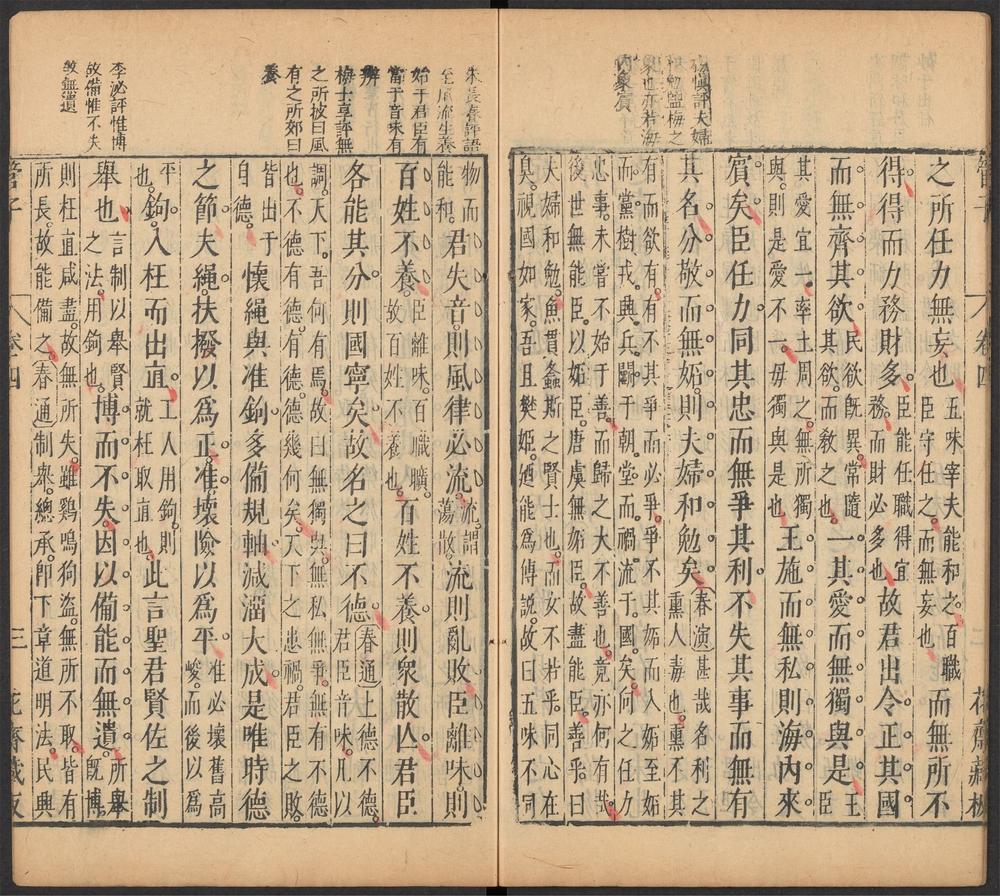 之所任力無妄也五味宰夫能和之百職
臣守任之而無妄也而無所不
得得而力務財多臣能任職得宜
務而財必多也故君出令正其國
而無齊其欲民欲旣異常隨
其欲而敎之也一其愛而無獨與是王
臣
其愛宜一率土周之無所獨
與則是愛不一毋獨與是也王施而無私則海內來
賓矣臣任力同其忠而無爭其利不失其事而無有
其名分敬而無妬則夫婦和勉矣春演甚哉名利之
熏人毒也熏不其
有而欲有有不其爭而必爭爭不其妬而人妬至妬
而黨樹戎興兵鬭于朝堂而禍流于國矣向之任力
忠事未嘗不始于善而歸之大不善也竟亦何有哉
後世無能臣以妬臣唐虞無妬臣故盡能臣善乎曰
夫婦和勉魚貫螽斯之賢士也而女不若乎同心在
臭視國如家吾且樊姬廼能為傅說故曰五味不同
物而能和君失音則風律必流流謂
蕩散流則亂敗臣離味則
百姓不養臣離味百職曠
故百姓不養也百姓不養則衆散亾君臣
各能其分則國寧矣故名之曰不德春通上德不德
君臣音味凡以
調天下吾何有焉故曰無獨與無私無爭無有不德
也不德有德有德德幾何矣天下之患禍君臣之敗
皆出于
自德懷繩與准鉤多備規軸減溜大成是唯時德
之節夫繩扶撥以為正准壞險以為平准必壞舊高
峻而後以為
平也鉤入枉而出直工人用鉤則
就枉取直也此言聖君賢佐之制
舉也言制以舉賢
之法用鉤也博而不失因以備能而無遺所舉
旣博
則枉直咸盡故無所失雖鷄鳴狗盜無所不取皆有
所長故能備之春通制衆總承卽下章道明法民興
管子
卷四
三
花齋藏板
朱長春評語
至風流生養
始于君臣有
當于音味有
辨
梅士享評無
之所披曰風
有之所郊曰
養
李泌評惟博
故備惟不失
故無遺